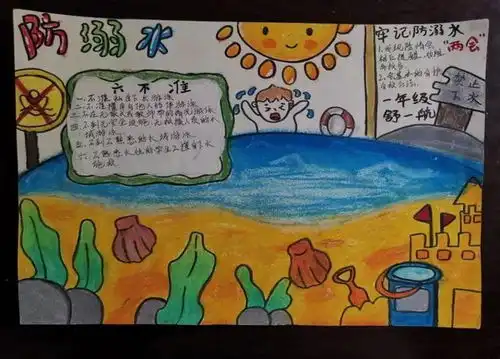 防溺水
六不准
一.不准私自下水游泳
二.不准擅自与他人结伴游泳
三.不在无家长或教师带领的情况下游泳
四.不到无安全设施、无救援人员的水
域游泳
五.不到不熟悉的水域游泳
六.不熟悉水性的学生不擅自下水
施救
牢记防溺水
"两会"
1.发现险情会
相互提醒、劝阻
2.会基本的自护
与救护方法
禁止
下水
一年级
舒一航